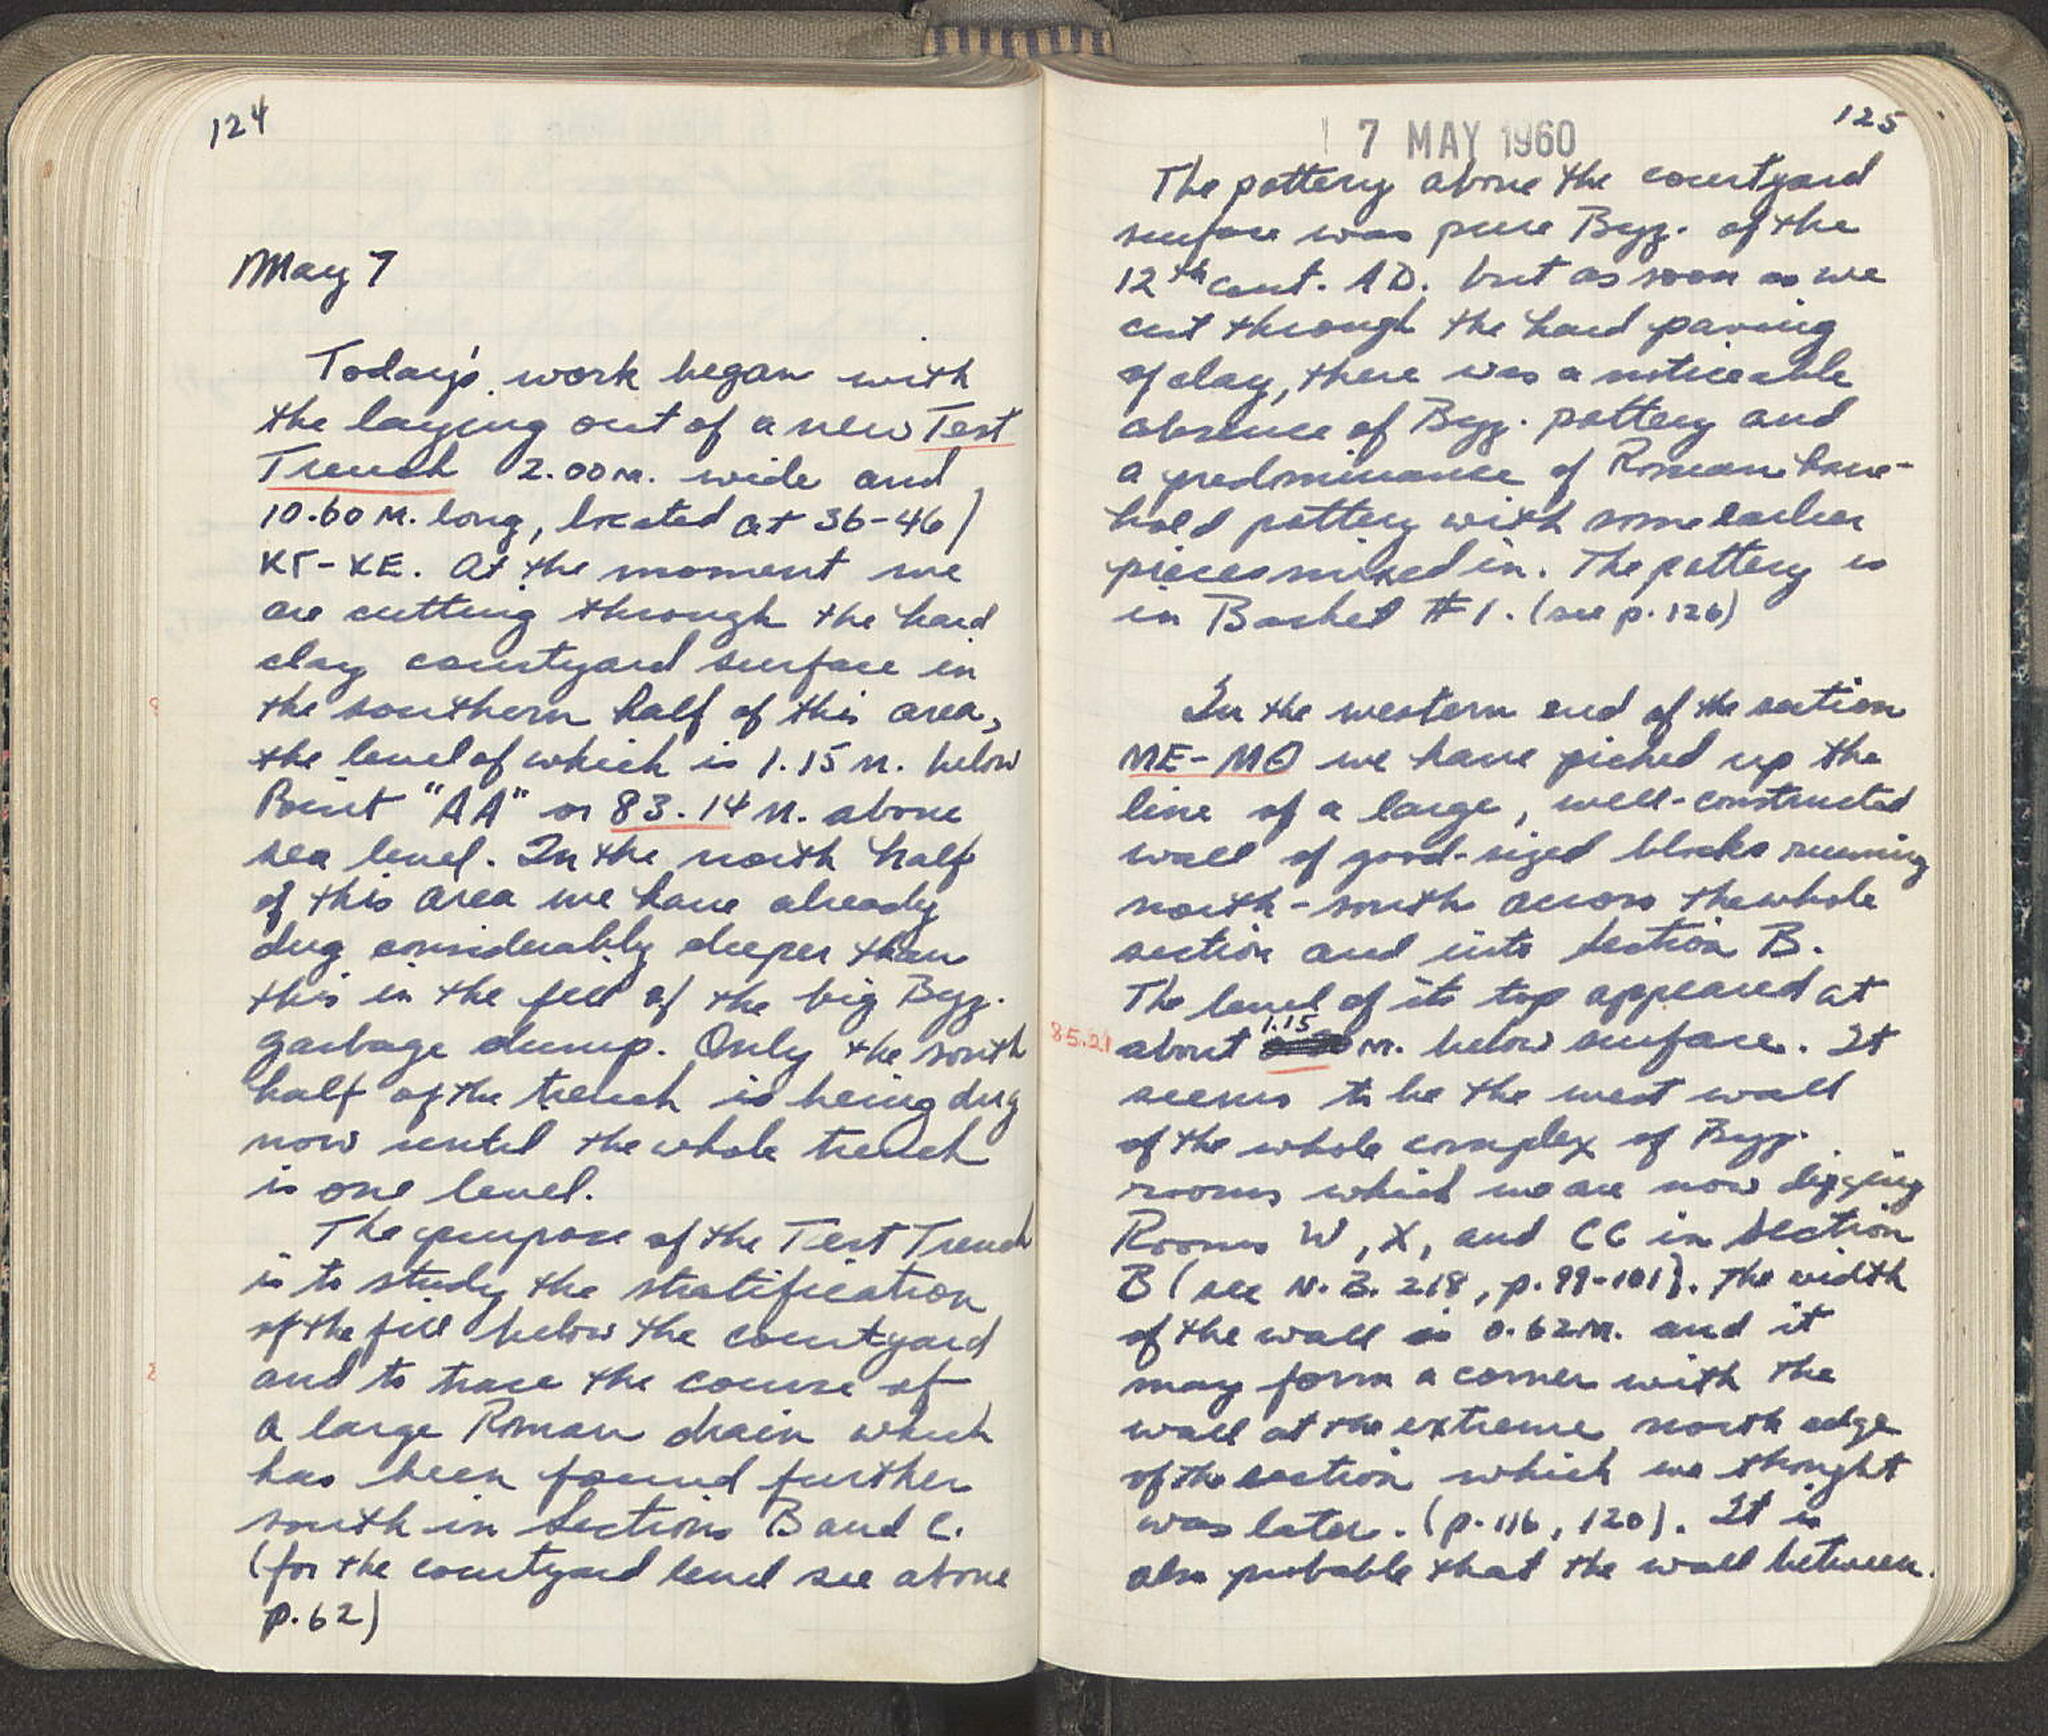 124
May 7
Today's work began with
the laying out of a new Test
Trench 2.00 m. wide and
10.60 M. long, located at 36-46/
ΚΓ-ΚΕ. At the moment we
are cutting through the hard
clay courtyard surface in
the southern half of this area,
the level of which is 1.15 m. below
Point "AA" or 83.14 m. above
sea level. In the north half
of this area we have already
dug considerably deeper than
this in the fill of the big Byz.
garbage dump. Only the south
half of the trench is being dug
now until the whole trench
is one level.
The purpose of the Test Trench
is to study the stratification
of the fill below the courtyard
and to trace the course of
a large Roman drain which
has been found further
south in Sections B and C.
(for the courtyard level see above
p. 62)
125
7 MAY 1960
The pottery above the courtyard
surface was pure Byz. of the
12th cent. AD. but as soon as we
cut through the hard paving
of clay, there was a noticeable
absence of Byz. pottery and
a predominance of Roman house-
hold pottery with some earlier
pieces mixed in. The pottery is
in Basket #1. (see p. 126)
In the western end of the section
ME-MΘ we have picked up the
line of a large, well-constructed
wall of good-sized blocks running
north-south across the whole
section and into Section B.
The level of its top appeared at
85.21 about 1.15 m. below surface. It
seems to be the west wall
of the whole complex of Byz.
rooms which we are now digging
Rooms W, X, and CC in Section
B (see N.B. 218, p. 99-101). The width
of the wall is 0.62 m. and it
may form a corner with the
wall at the extreme north edge
of the section which we thought
was later. (p. 116, 120). It is
also probable that the wall between